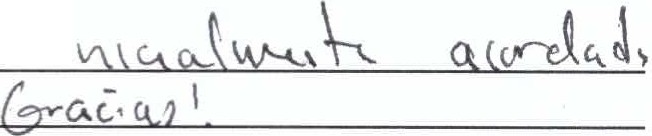 nicialmente acordado
Gracias!